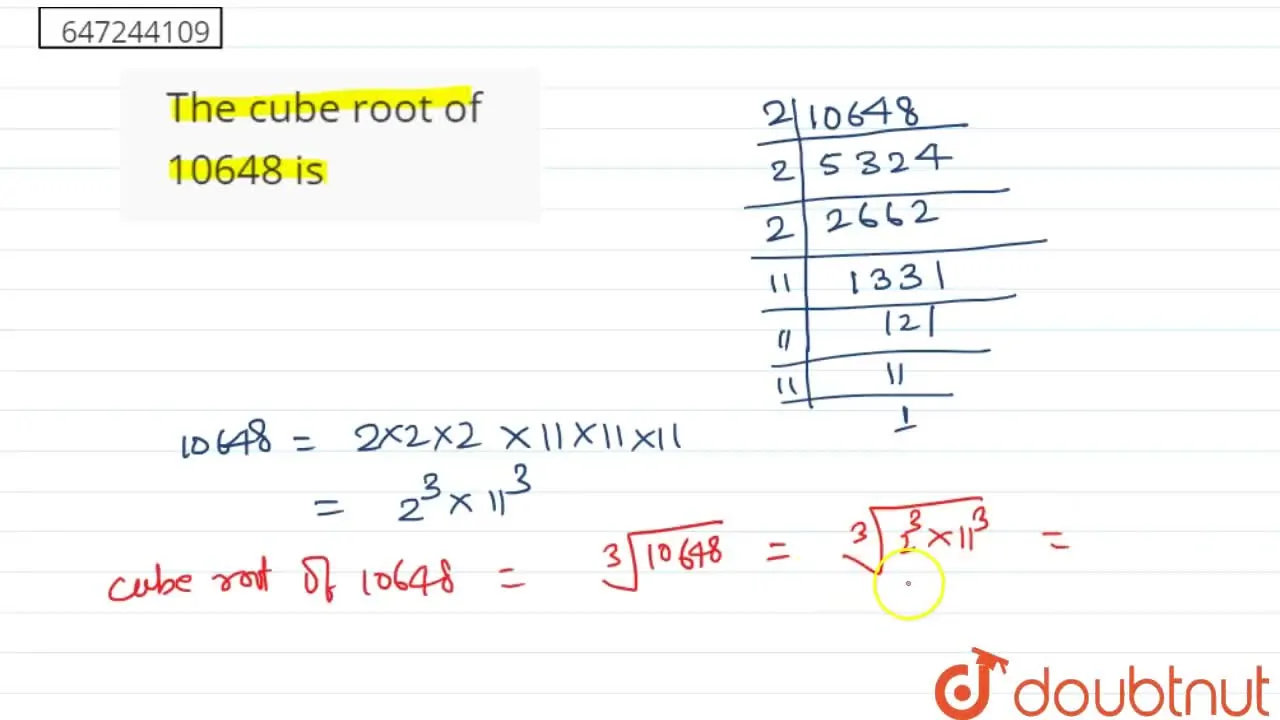 647244109
The cube root of
10648 is
2 | 10648
2 | 5324
2 | 2662
11 | 1331
11 | 121
11 | 11
1
10648 = 2×2×2 ×11×11×11
= 2³ × 11³
cube root of 10648 = ∛10648 = ∛2³×11³ =
doubtnut